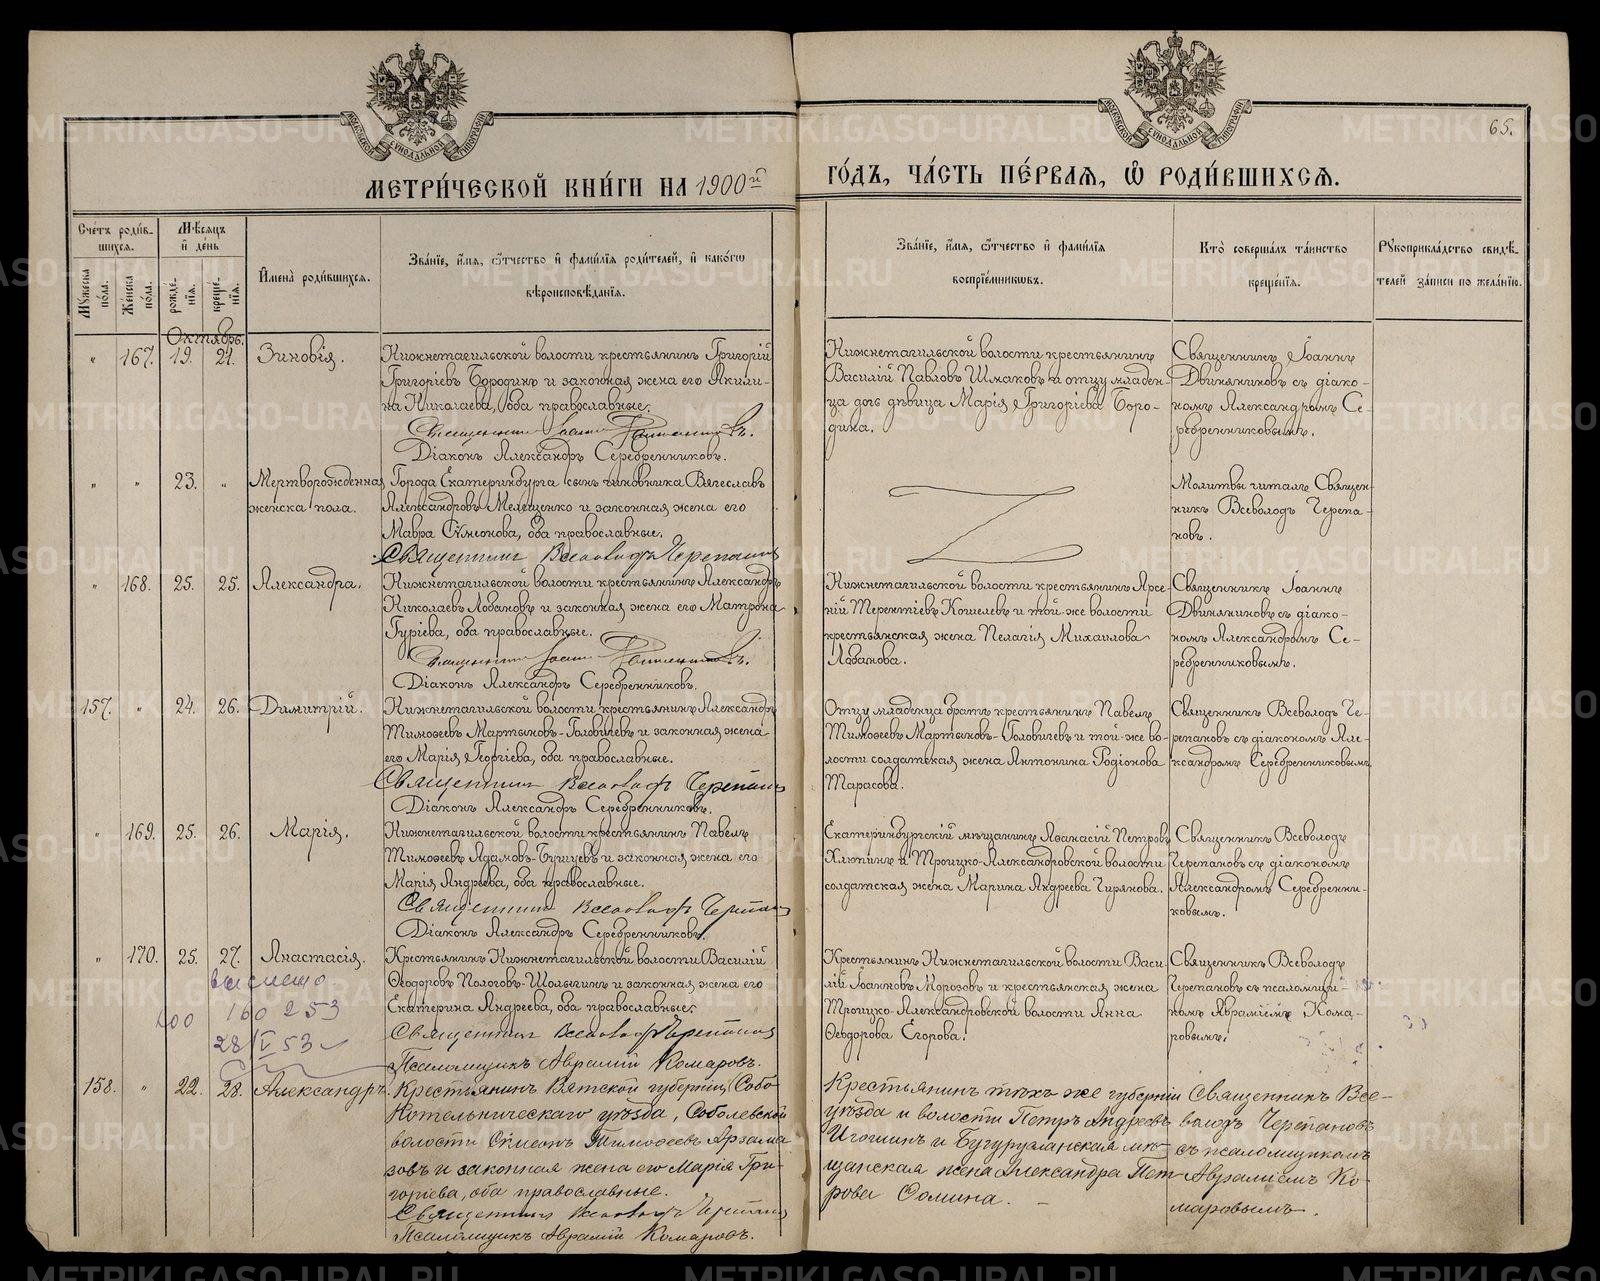 МЕТРИ́ЧЕСКОЙ КНИ́ГИ НА 1900й
ГО́ДЪ, ЧА́СТЬ ПЕ́РВАЯ, Ѡ РОДИ́ВШИХСЯ.
65.
Сче́тъ роди́в-
шихся.
Мѣ́сяцъ
и де́нь
Му́жеска по́ла.
Же́нска по́ла.
рожде́-
нія.
креще́-
нія.
Имена̀ роди́вшихся.
Зва́ніе, и́мя, ѻ҆́тчество и фами́лія роди́телей, и како́гѡ
вѣроисповѣ́данія.
Зва́ніе, и́мя, ѻ҆́тчество и фами́лія
воспріе́мниковъ.
Кто̀ соверша́лъ та́инство
креще́нія.
Рꙋкоприкла́дство свидѣ́-
телей за́писи по жела́нію.
Октябрь.
" 167. 19. 21. Зиновія.
Нижнетагильской волости крестьянинъ Григорій
Григоріевъ Бородинъ и законная жена его Акили-
на Николаева, оба православные.
Священникъ Іоаннъ
Діаконъ Александръ Серебренниковъ.
Нижнетагильской волости крестьянинъ
Василій Павловъ Шмаковъ и отцу младен-
ца дочь дѣвица Марія Григоріева Боро-
дина.
Священникъ Іоаннъ
Двиняниновъ съ діако-
номъ Александромъ Се-
ребренниковымъ.
" " 23. " Мертворожденная
женска пола.
Города Екатеринбурга сынъ чиновника Вячеславъ
Александровъ Мелещенко и законная жена его
Мавра Сѵмеонова, оба православные.
Священникъ Всеволодъ Черепановъ
Молитвы читалъ Священ-
никъ Всеволодъ Черепа-
новъ.
" 168. 25. 25. Александра.
Нижнетагильской волости крестьянинъ Александръ
Николаевъ Лобановъ и законная жена его Матрона
Гуріева, оба православные.
Священникъ Іоаннъ
Діаконъ Александръ Серебренниковъ.
Нижнетагильской волости крестьянинъ Арсе-
ній Терентіевъ Кошелевъ и той-же волости
крестьянская жена Пелагія Михаилова
Лобанова.
Священникъ Іоаннъ
Двиняниновъ съ діако-
номъ Александромъ Се-
ребренниковымъ.
157. " 24. 26. Димитрій.
Нижнетагильской волости крестьянинъ Александръ
Тимоѳеевъ Мартыновъ-Головичевъ и законная жена
его Марія Георгіева, оба православные.
Священникъ Всеволодъ Черепановъ
Діаконъ Александръ Серебренниковъ.
Отцу младенца братъ крестьянинъ Павелъ
Тимоѳеевъ Мартыновъ-Головичевъ и той-же во-
лости солдатская жена Антонина Родіонова
Тарасова.
Священникъ Всеволодъ Че-
репановъ съ діакономъ Але-
ксандромъ Серебренниковымъ.
" 169. 25. 26. Марія.
Нижнетагильской волости крестьянинъ Павелъ
Тимоѳеевъ Адамовъ-Бушуевъ и законная жена его
Марія Андреева, оба православные.
Священникъ Всеволодъ Черепановъ
Діаконъ Александръ Серебренниковъ.
Екатеринбургскій мѣщанинъ Аѳанасій Петровъ
Хлютинъ и Троицко-Александровской волости
солдатская жена Марина Андреева Чирякова.
Священникъ Всеволодъ
Черепановъ съ діакономъ
Александромъ Серебренни-
ковымъ.
" 170. 25. 27. Анастасія.
Крестьянинъ Нижнетагильской волости Василій
Ѳеодоровъ Пологовъ-Шолыгинъ и законная жена его
Екатерина Андреева, оба православные.
Священникъ Всеволодъ Черепановъ
Псаломщикъ Авраамій Комаровъ.
Крестьянинъ Нижнетагильской волости Васи-
лій Іоанновъ Морозовъ и крестьянская жена
Троицко-Александровской волости Анна
Ѳеодорова Егорова.
Священникъ Всеволодъ
Черепановъ съ псаломщи-
комъ Авраміемъ Кома-
ровымъ.
160 253
28/V 53
158. " 22. 28. Александръ.
Крестьянинъ Вятской губерніи, Собо
Котельническаго уѣзда, Соболевской
волости Сѵмеонъ Тимоѳеевъ Арзама-
зовъ и законная жена его Марія Гри-
горіева, оба православные.
Священникъ Всеволодъ Черепановъ
Псаломщикъ Авраамій Комаровъ.
Крестьянинъ тѣхъ же губерніи
уѣзда и волости Петръ Андреевъ
Игошинъ и Бугурусланская мѣ-
щанская жена Александра Пет-
рова Ѳомина.
Священникъ Все-
володъ Черепановъ
съ псаломщикомъ
Авраміемъ Ко-
маровымъ.
METRIKI.GASO-URAL.RU